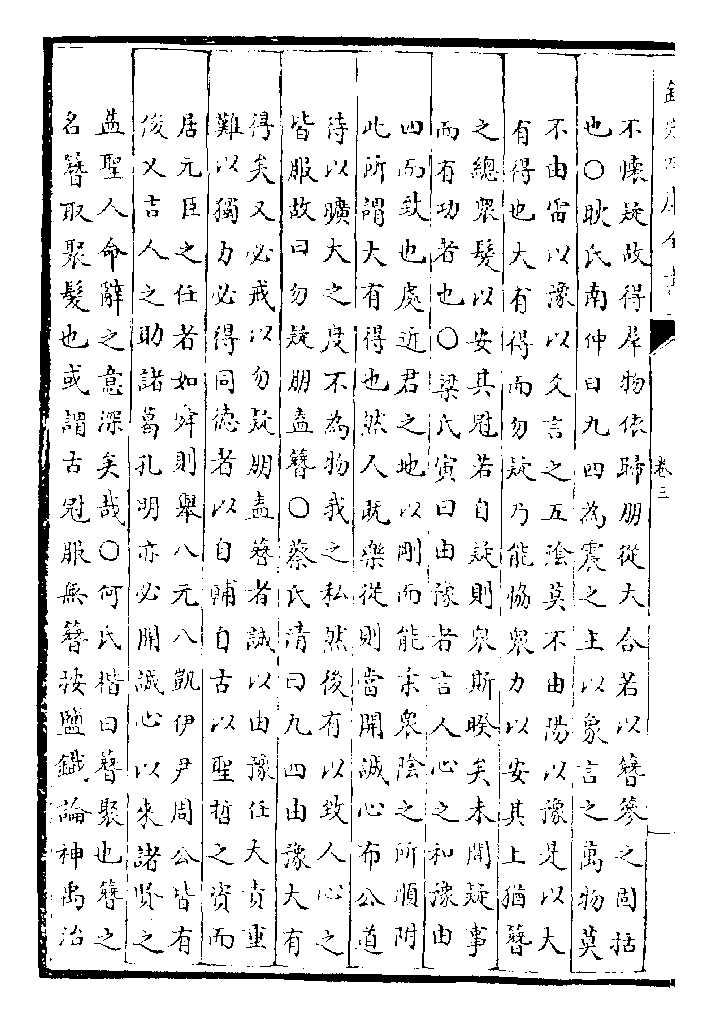 欽定四庫全書 卷三
不懷疑故得羣物依歸朋從大合若以簪篸之固括
也○耿氏南仲曰九四為震之主以象言之萬物莫
不由雷以豫以爻言之五陰莫不由陽以豫是以大
有得也大有得而勿疑乃能恊衆力以安其上猶簪
之總衆髮以安其冠若自疑則衆斯暌矣未聞疑事
而有功者也○梁氏寅曰由豫者言人心之和豫由
四而致也處近君之地以剛而能柔衆陰之所順附
此所謂大有得也然人既樂從則當開誠心布公道
待以曠大之度不為物我之私然後有以致人心之
皆服故曰勿疑朋盍簪○蔡氏清曰九四由豫大有
得矣又必戒以勿疑朋盍簪者誠以由豫任大責重
難以獨力必得同德者以自輔自古以聖哲之資而
居元臣之任者如舜則舉八元八凱伊尹周公皆有
俊乂吉人之助諸葛孔明亦必開誠心以來諸賢之
益聖人命辭之意深矣哉○何氏楷曰簪聚也簪之
名簪取聚髮也或謂古冠服無簪按鹽鐵論神禹治